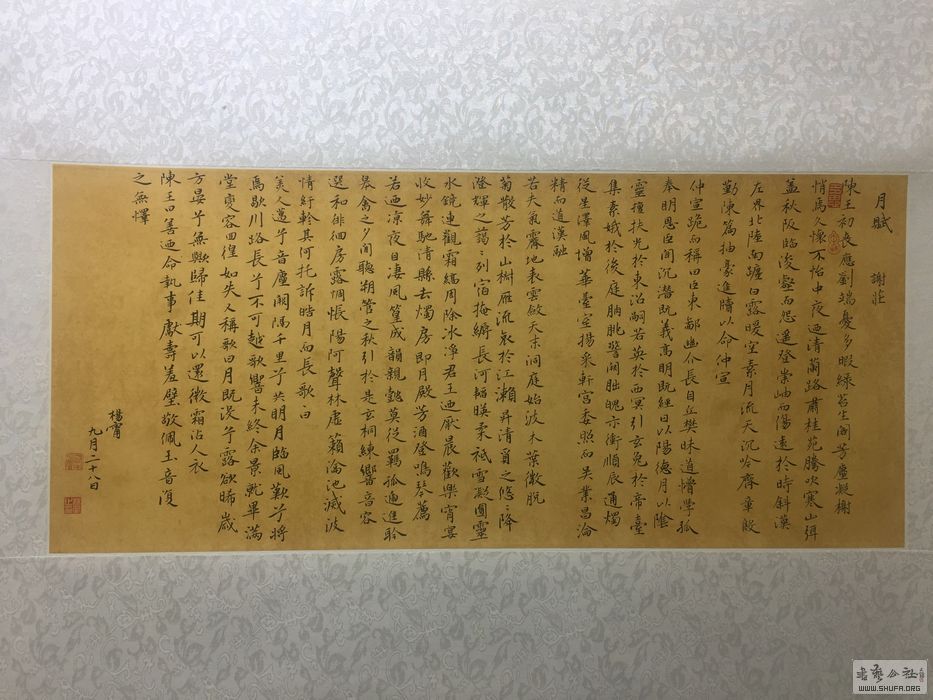 月賦　　謝莊
陳王初喪應劉端憂多暇綠苔生閣芳塵凝榭
悄焉久懷不怡中夜迺清蘭路肅桂苑騰吹寒山弭
蓋秋阪臨浚壑而怨遥登崇岫而傷遠於時斜漢
左界北陸南躔白露曖空素月流天沉吟齊章殷
勤陳篇抽毫進牘以命仲宣
仲宣跪而稱曰臣東鄙幽介長自丘樊昧道懵學孤
奉明恩臣聞沉潛既義高明既經日以陽德月以陰
靈擅扶光於東沼嗣若英於西冥引玄兔於帝臺
集素娥於後庭朒朓警闕朏魄示衝順辰通燭
從星澤風增華臺室揚采軒宮委照而吳業昌淪
精而漢道融
若夫氣霽地表雲斂天末洞庭始波木葉微脫
菊散芳於山椒雁流哀於江瀨升清質之悠悠降
澄輝之藹藹列宿掩縟長河韜映柔祇雪凝圓靈
水鏡連觀霜縞周除冰淨君王迺厭晨歡樂宵宴
收妙舞馳清縣去燭房即月殿芳酒登鳴琴薦
若迺涼夜自凄風篁成韻親懿莫從羈孤遞進聆
皋禽之夕聞聽朔管之秋引於是玄桐練響音容
選和徘徊房露惆悵陽阿聲林虛籟淪池滅波
情紆軫其何托訴皓月而長歌歌曰
美人邁兮音塵闕隔千里兮共明月臨風歎兮將
焉歇川路長兮不可越歌響未終余景就畢滿
堂變容回徨如失又稱歌曰月既沒兮露欲晞歲
方晏兮無與歸佳期可以還微霜沾人衣
陳王曰善迺命執事獻壽羞璧敬佩玉音復
之無懌
楊霄
九月二十八日
書藝公社
WWW.SHUFA.ORG